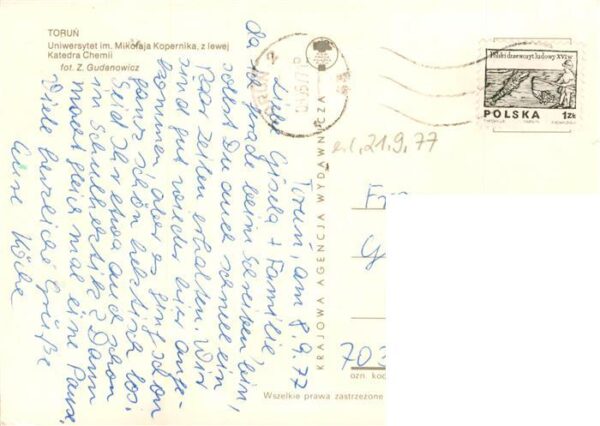 TORUŃ
Uniwersytet im. Mikołaja Kopernika, z lewej
Katedra Chemii
fot. Z. Gudanowicz
Toruń, am 8.9.77
Liebe Gisela + Familie,
da ich grade beim Schreiben bin,
sollst Du auch schnell ein
Paar Zeilen erhalten. Wir
sind gut wieder hier ange-
kommen, aber es ging schon
ganz schön hektisch los.
Seid Ihr etwa auch schon
in Schulhektik? Dann
macht gleich mal eine Pause.
Viele herzliche Grüße
Eure
KRAJOWA AGENCJA WYDAWNICZA
Polski drzeworyt ludowy XVI w.
POLSKA 1 Zł
21.9.77
Fr
G
703
ozn. kod
Wszelkie prawa zastrzeżone